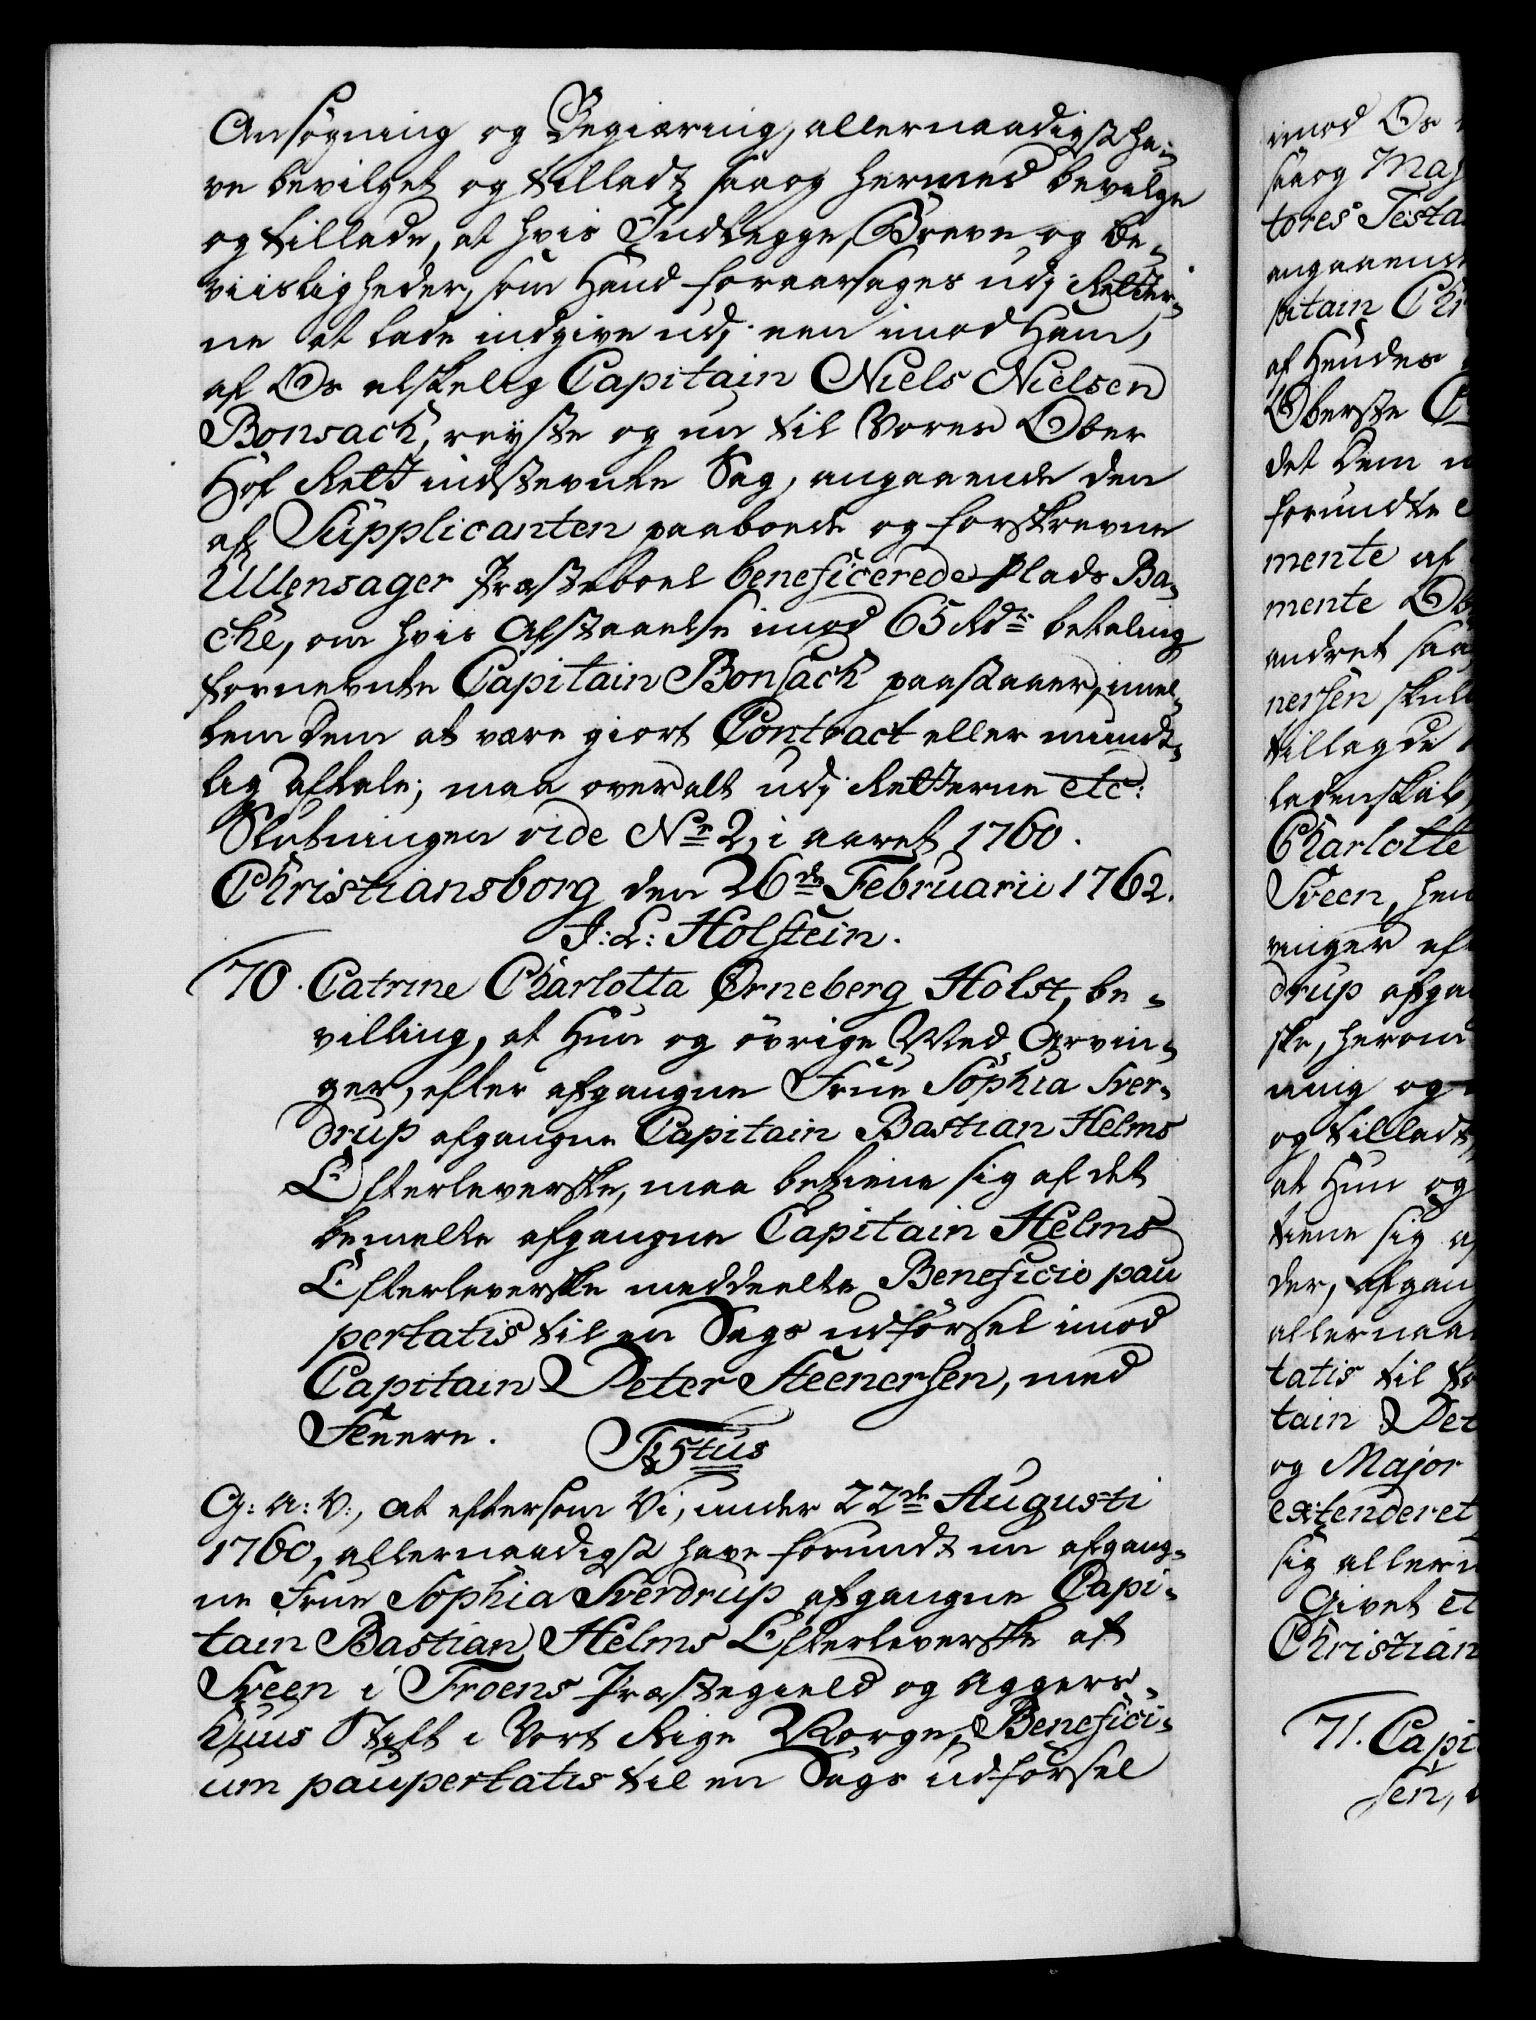 Ansøgning og Begiæring, allernaadigst ha-
ve bevilget og tilladt, saa og hermed bevilge
og tillade, at hvis Indlegge, Breve og be-
viisligheder, som Hand foraarsages udj Retter-
ne at lade indgive udj een imod Ham,
af Os elskelig Capitain Niels Nielsen
Bonsach, reyste og nu til Vores Ober
Hof Rett indstevnte Sag, angaaende den
af Supplicanten paaboede og forskrevne
Ullensager Præsteboel beneficerede Plads Ba-
che, om hvis Afstaaelse imod 65 Rdr betaling
fornevnte Capitain Bonsach paastaaer, imel-
lem Dem at være giort Contract eller mundt-
lig Aftale; maa overalt udj Retterne etc:
Slutningen vide No 2, i aaret 1760.
Christiansborg den 26de Februarii 1762.
J: L: Holstein.
70. Catrine Charlotta Ørneberg Holst, be-
villing, at Hun og øvrige Med Arvin-
ger, efter afgangne Frue Sophia Sver-
drup afgangne Capitain Bastian Helms
Efterleverske, maa betiene sig af det
bemelte afgangne Capitain Helms
Efterleverske meddeelte Beneficio pau
pertatis til en Sags udførsel imod
Capitain Peter Steenersen, med
Fleere.
Textus
G: A: V:, at eftersom Vi, under 22de Augusti
1760, allernaadigst have forundt nu afgang-
ne Frue Sophia Sverdrup afgangne Capi-
tain Bastian Helms Efterleverske af
Sveen i Froens Præstegield og Aggers-
huus Stift i Vort Rige Norge, Benefici-
um paupertatis til en Sags udførsel
imod Os
saa og Maj
tores Testa
angaaende
pitain Ch
af Hendes
Oberste
det Dem
forundte
mente af
mente
andret saa
nersen skul
tillagde
Charlotte
Sveen,
vinger eft
drup afga
ske, herom
ning og
og tilladt,
at Hun og
tiene sig af
der, afgan
allernaa
tatis til
tain Pet
og Major
extenderet
sig allern
Givet et
Christian
71. Capi
sen,